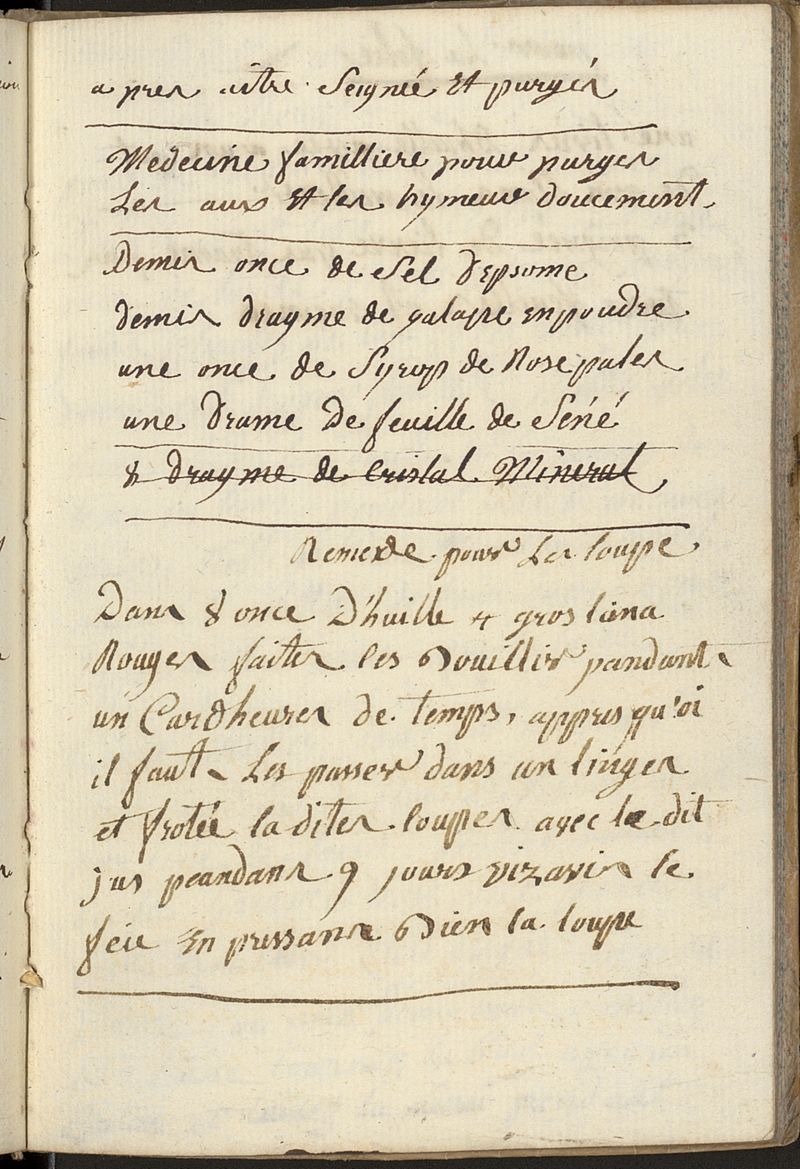 a pres aitre Seignée Et purgés
Medecine familliere pour purger
Les aux Et les hymeur doucement.
Demis once de Sel D'epsome
demis dragme de galape en poudre
une once de Syrop de Rose pales
une Drame De feuille de Séné
8 dragme de Cristal Mineral
Remede pour Les loupe
Dans 8 once D'huille 4 gros
Rouges faites les Bouillir pandant
un Cardheures de temps, appres qu'oi
il faut Les passer dans un linges
et frotée la dites loupes avec le dit
jus peandans 9 jours vizavis le
feu En pressans Bien la loupe